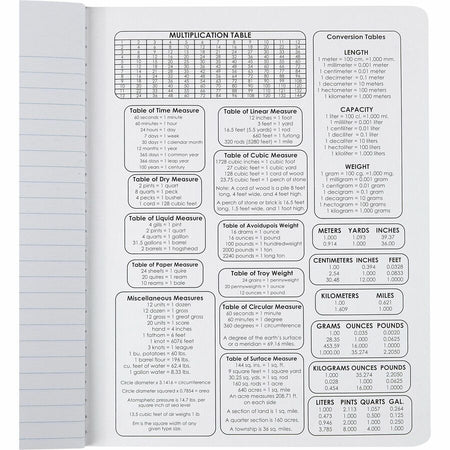 MULTIPLICATION TABLE
Table of Time Measure
60 seconds = 1 minute
60 minutes = 1 hour
24 hours = 1 day
7 days = 1 week
30 days = 1 calendar month
12 months = 1 year
365 days = 1 common year
366 days = 1 leap year
100 years = 1 century
Table of Dry Measure
2 pints = 1 quart
8 quarts = 1 peck
4 pecks = 1 bushel
1 cord = 128 cubic feet
Table of Liquid Measure
4 gills = 1 pint
2 pints = 1 quart
4 quarts = 1 gallon
31.5 gallons = 1 barrel
2 barrels = 1 hogshead
Table of Paper Measure
24 sheets = 1 quire
20 quires = 1 ream
10 reams = 1 bale
Miscellaneous Measures
12 units = 1 dozen
12 dozen = 1 gross
12 gross = 1 great gross
20 units = 1 score
1 hand = 4 inches
1 fathom = 6 feet
1 knot = 6076 feet
3 knots = 1 league
1 bu. potatoes = 60 lbs.
1 barrel flour = 196 lbs.
1 cu. feet of water = 62.4 lbs.
1 gallon water = 8.33 lbs.
Circle diameter x 3.1416 = circumference
Circle diameter squared x 0.7854 = area
Atomspheric pressure is 14.7 lbs. per
square inch at sea level
13.5 cubic feet of air weighs 1 lb
Em is the square width of any
given type size.
Table of Linear Measure
12 inches = 1 foot
3 feet = 1 yard
16.5 feet (5.5 yards) = 1 rod
660 feet = 1 furlong
320 rods (5280 feet) = 1 mile
Table of Cubic Measure
1728 cubic inches = 1 cubic foot
27 cubic feet = 1 cubic yard
128 cubic feet = 1 cord of wood
23.75 cubic feet = 1 perch of stone
Note: A cord of wood is a pile 8 feet
long, 4 feet wide, and 4 feet high.
A perch of stone or brick is 16.5 feet
long, 1.5 feet wide, and 1 foot high.
Table of Avoidupois Weight
16 drams = 1 ounce
16 ounces = 1 pound
100 pounds = 1 hundredweight
2000 pounds = 1 ton
2240 pounds = 1 long ton
Table of Troy Weight
24 grains = 1 pennyweight
20 pennyweights = 1 ounce
12 ounces = 1 pound
Table of Circular Measure
60 seconds = 1 minute
60 minutes = 1 degree
360 degrees = 1 circumference
A degree of the earth's surface
or a meridian = 69.16 miles.
Table of Surface Measure
144 sq. ins. = 1 sq. ft.
9 square feet = 1 sq. yard
30.25 sq. yds. = 1 sq. rod
160 sq. rods = 1 acre
640 acres = 1 sq. mile
An acre measures 208.71 ft.
on each side.
A section of land is 1 sq. mile.
A quarter section is 160 acres.
A township is 36 sq. miles.
Conversion Tables
LENGTH
1 meter = 100 cm. =1,000 mm.
1 millimeter = 0.001 meter
1 centimeter = 0.01 meter
1 decimeter = 0.1 meter
1 decameter = 10 meters
1 hectometer = 100 meters
1 kilometer = 1,000 meters
CAPACITY
1 liter = 100 cl. =1,000 ml.
1 milliliter = 0.001 liter
1 centiliter = 0.01 liter
1 deciliter = 0.1 liter
1 decaliter = 10 liters
1 hectoliter = 100 liters
1 kiloliter = 1,000 liters
WEIGHT
1 gram = 100 cg. =1,000 mg.
1 milligram = 0.001 gram
1 centigram = 0.01 gram
1 decigram = 0.1 gram
1 decagram = 10 grams
1 hectogram = 100 grams
1 kilogram = 1,000 grams
METERS YARDS INCHES
1.000 1.093 39.37
0.914 1.000 36.00
CENTIMETERS INCHES FEET
1.00 0.394 0.0328
2.54 1.00 0.0833
30.48 12.00 1.000
KILOMETERS MILES
1.000 0.621
1.609 1.000
GRAMS OUNCES POUNDS
1.00 0.035 0.0020
28.35 1.000 0.0625
453.59 16.00 1.000
1,000.00 35.274 2.2050
KILOGRAMS OUNCES POUNDS
1.00 35.274 2.2050
0.028 1.000 0.0625
0.454 16.000 1.000
LITERS PINTS QUARTS GAL.
1.000 2.113 1.057 0.264
0.473 1.000 0.500 0.125
0.946 2.000 1.000 0.250
3.785 8.000 4.000 1.000